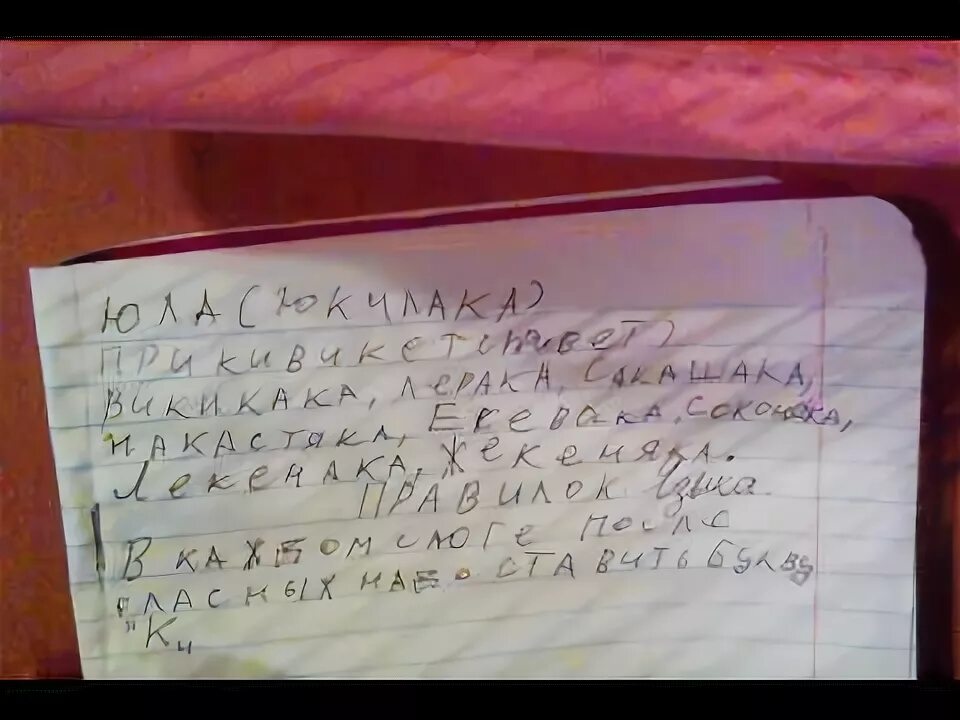 ЮЛА (ЮКУЛАКА)
ПРИКИВИКЕТ (привет)
ВИКИКАКА, ЛЕРАКА, САКАШАКА,
НАКАСТЯКА, ЕКЕВАКА, СОКОНЯКА,
ЛЕКЕНАКА, ЖЕКЕНЯКА.
ПРАВИЛОК Языка
В КАЖДОМ СЛОГЕ ПОСЛЕ
ГЛАСНЫХ НАДО СТАВИТЬ БУКВУ
"К"